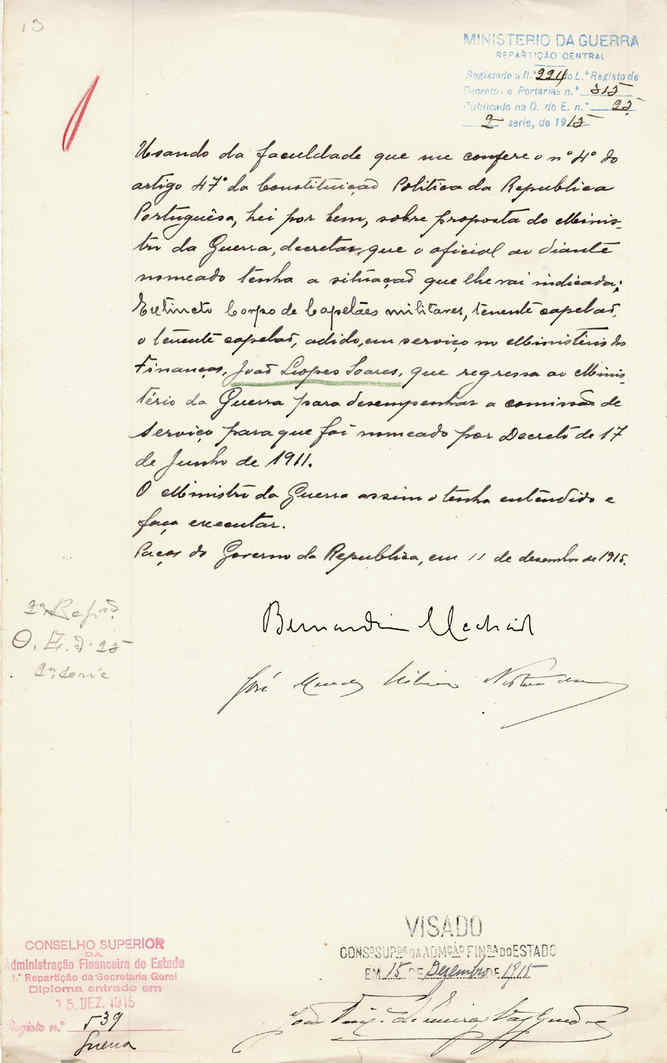 13
MINISTERIO DA GUERRA
REPARTIÇÃO CENTRAL
Registado a fl. 224 do L.º Registo de
Decretos e Portarias n.º 315
Publicado na O. do E. n.º 25
2 serie, de 1915
Usando da faculdade que me confere o nº 4º do
artigo 47º da Constituição Politica da Republica
Portuguêsa, hei por bem, sobre proposta do Minis-
tro da Guerra, decretar, que o oficial ao diante
nomeado tenha a situação que lhe vai indicada:
Extincto Corpo de Capelães militares, tenente capelão,
o tenente capelão, adido, em serviço no Ministério das
Finanças, João Lopes Soares, que regressa ao Minis-
tério da Guerra para desempenhar a comissão de
serviço para que foi nomeado por Decreto de 17
de Junho de 1911.
O Ministro da Guerra assim o tenha entendido e
faça executar.
Paços do Governo da Republica, em 11 de dezembro de 1915.
Bernardino Machado
José Mendes Ribeiro Norton de
2ª Rep
O. E. nº 25
2ª serie
VISADO
CONSº SUPº DA ADMÇÃO FINRA DO ESTADO
EM 15 DE Dezembro DE 1915
CONSELHO SUPERIOR
DA
Administração Financeira do Estado
1.ª Repartição da Secretaria Geral
Diploma entrado em
15. DEZ. 1915
Registo n.º 539
Guerra